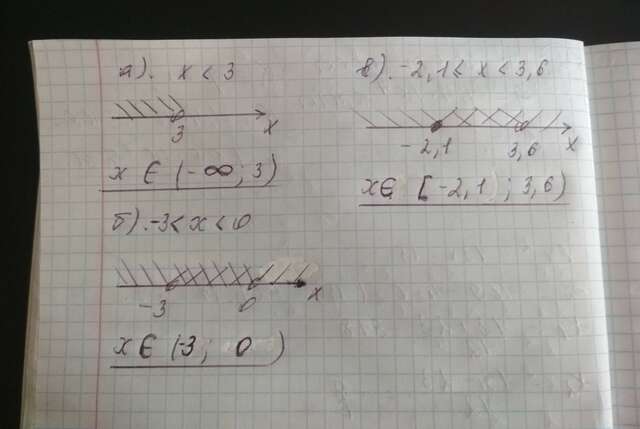 а). x < 3
3 x
x ∈ (-∞; 3)
б). -3 < x < 0
-3 0 x
x ∈ (-3; 0)
в). -2,1 ≤ x < 3,6
-2,1 3,6 x
x ∈ [-2,1); 3,6)